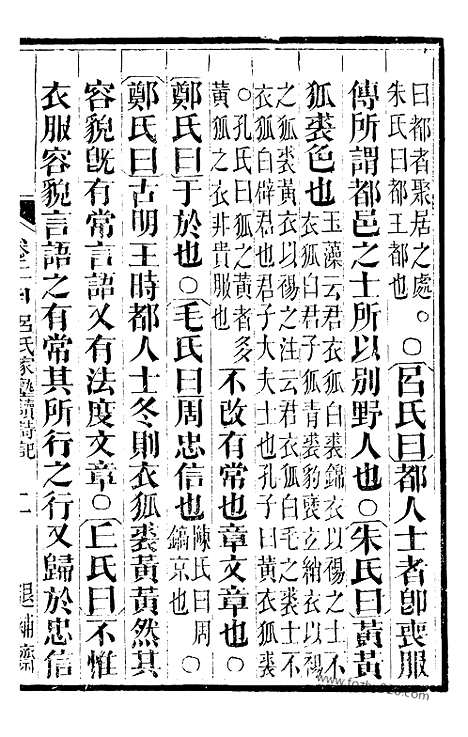 曰都者聚居之處
朱氏曰都王都也
○○呂氏曰都人士者卽喪服
傳所謂都邑之士所以別野人也○朱氏曰黃黃
狐裘色也
玉藻云君衣狐白裘錦衣以裼之士不
衣狐白君子狐青裘豹褎玄綃衣以裼
之狐裘黃衣以裼之注云君衣狐白毛之裘士不
衣狐白辟君也君子大夫士也孔子曰黃衣狐裘
○孔氏曰狐之黃者多
黃狐之衣非貴服也
不改有常也章文章也○
鄭氏曰于於也○毛氏曰周忠信也
陳氏曰周
鎬京也
○
鄭氏曰古明王時都人士冬則衣狐裘黃黃然其
容貌旣有常言語又有法度文章○丘氏曰不惟
衣服容貌言語之有常其所行之行又歸於忠信
卷二十四 呂氏家塾讀詩記 二 退補齋
www.fozhu920.com